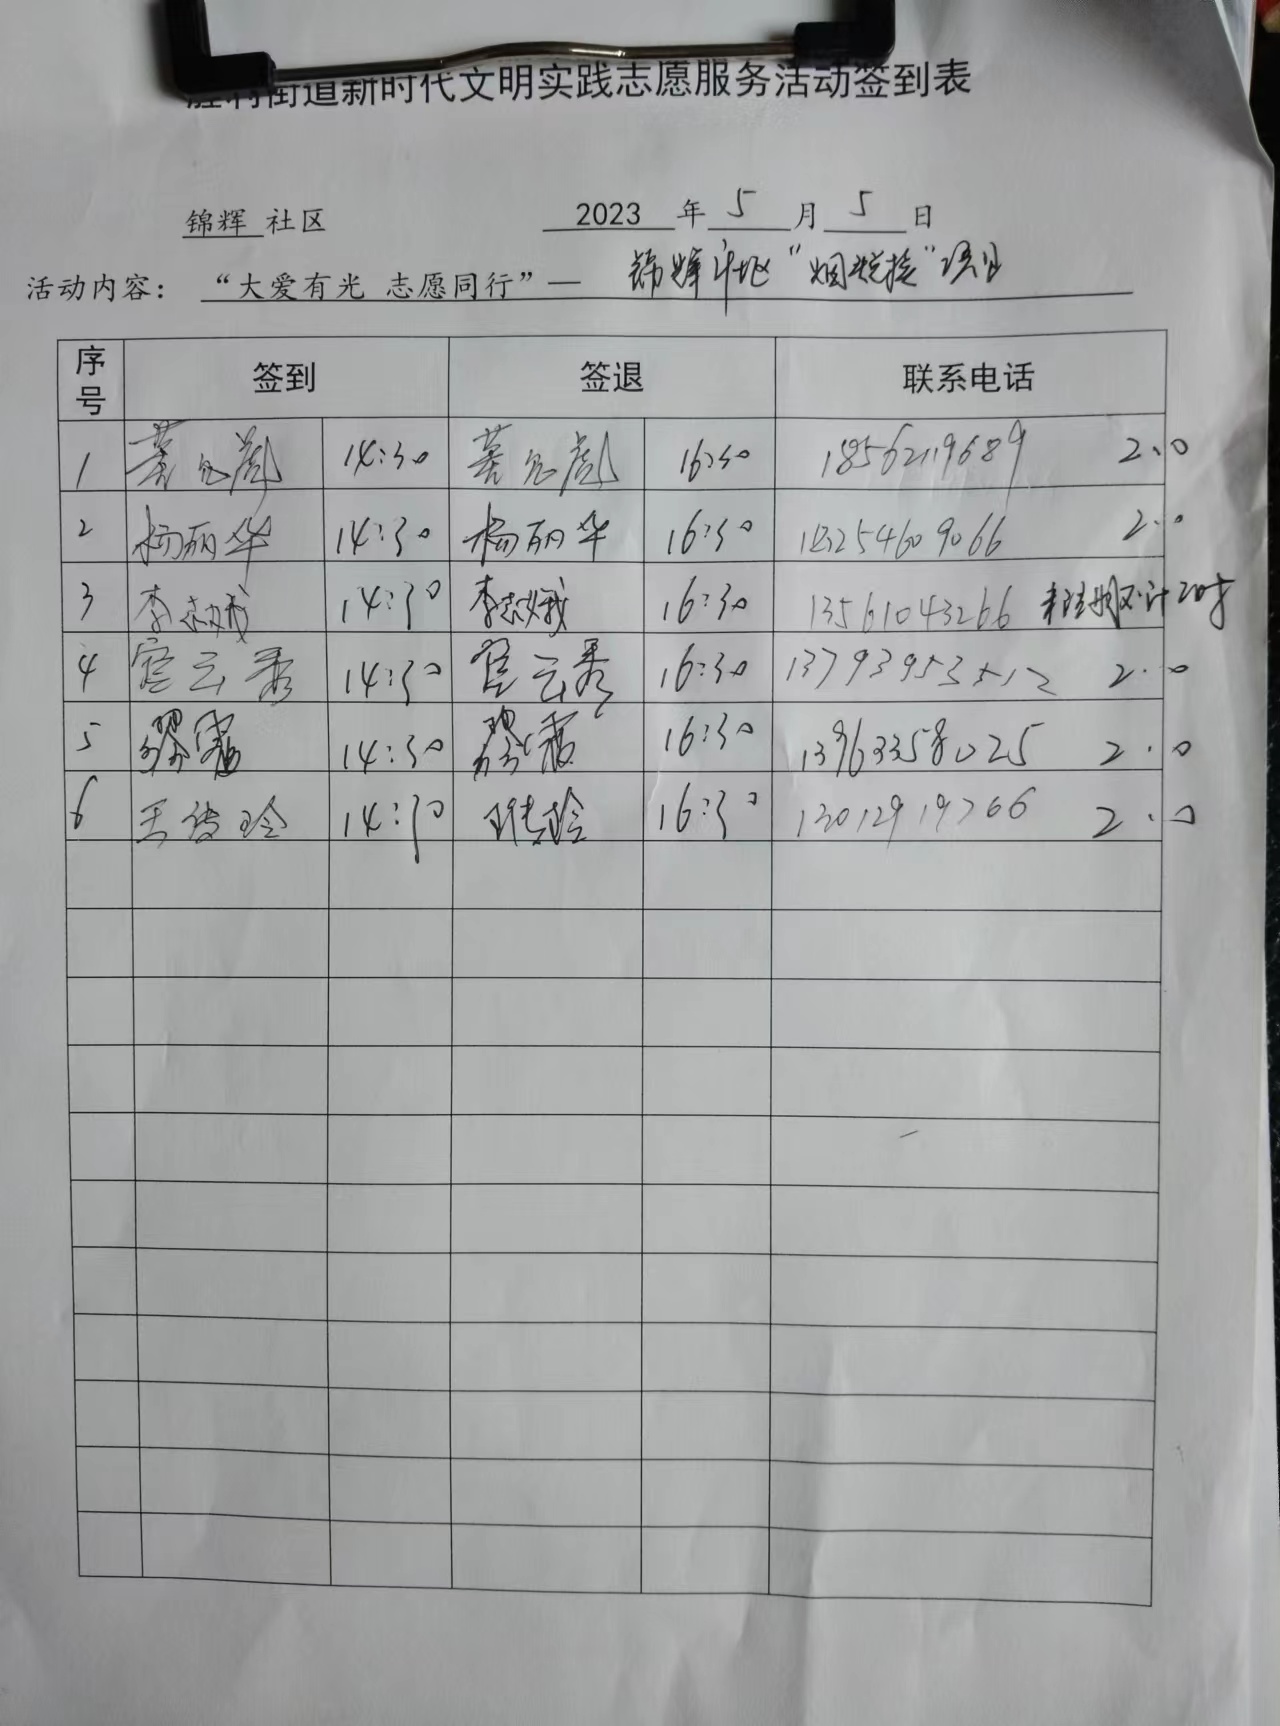 胜利街道新时代文明实践志愿服务活动签到表
锦辉 社区 2023 年 5 月 5 日
活动内容： “大爱有光 志愿同行”— 锦辉社区“ ”项目
序号 签到 签退 联系电话
1 14:30 16:30 18562119689 2.0
2 杨丽华 14:30 杨丽华 16:30 183254609066 2.0
3 李志娥 14:30 李志娥 16:30 13561043266 未注册不计时
4 官云秀 14:30 官云秀 16:30 13793953512 2.0
5 缪霞 14:30 缪霞 16:30 13963358025 2.0
6 王传玲 14:30 王传玲 16:30 13012919766 2.0